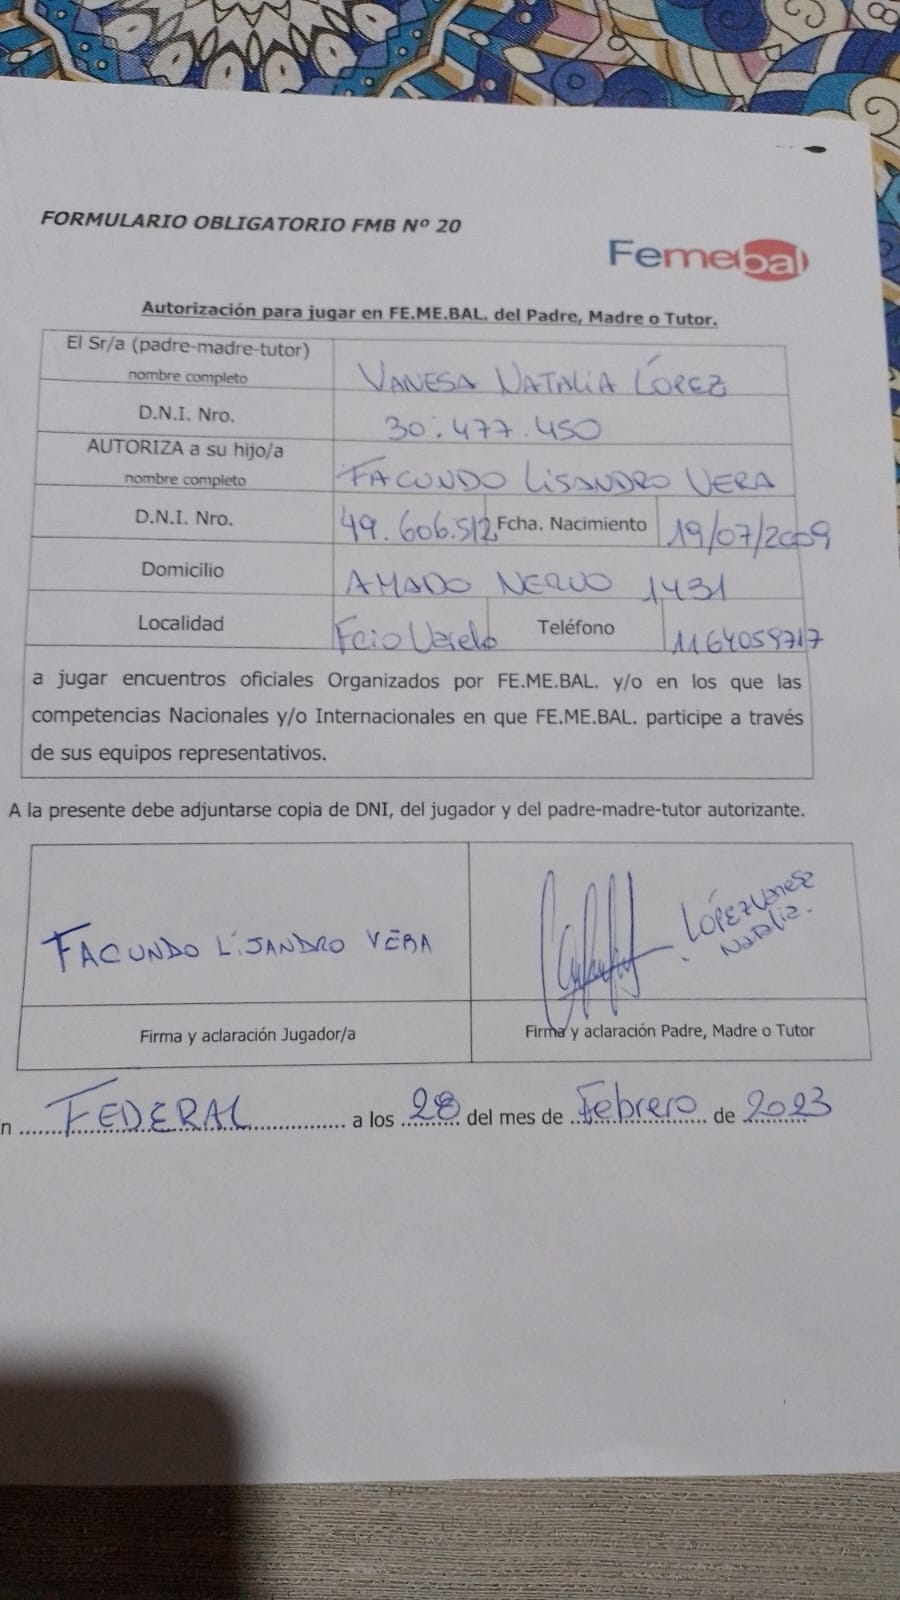 FORMULARIO OBLIGATORIO FMB Nº 20
Femebal
Autorización para jugar en FE.ME.BAL. del Padre, Madre o Tutor.
El Sr/a (padre-madre-tutor)
nombre completo
VANESA NATALIA LÓPEZ
D.N.I. Nro.
30.477.450
AUTORIZA a su hijo/a
nombre completo
FACUNDO LISANDRO VERA
D.N.I. Nro.
49.606.512
Fcha. Nacimiento
19/07/2009
Domicilio
AMADO NERVO 1431
Localidad
Fcio Varela
Teléfono
1164059717
a jugar encuentros oficiales Organizados por FE.ME.BAL. y/o en los que las
competencias Nacionales y/o Internacionales en que FE.ME.BAL. participe a través
de sus equipos representativos.
A la presente debe adjuntarse copia de DNI, del jugador y del padre-madre-tutor autorizante.
FACUNDO LISANDRO VERA
LÓPEZ Vanesa
Natalia.
Firma y aclaración Jugador/a
Firma y aclaración Padre, Madre o Tutor
n ..... FEDERAL ..... a los 28 del mes de Febrero de 2023